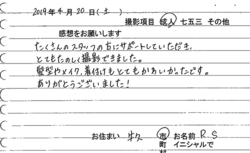 2019年4月20日(土)
撮影項目 成人 七五三 その他
感想をお願いします
たくさんのスタッフの方にサポートしていただき、
とてもたのしく撮影できました。
髪型やメイク、着付けもとてもかわいかったです。
ありがとうございました!
お住まい 牛久 市町村 お名前 R.S
イニシャルで